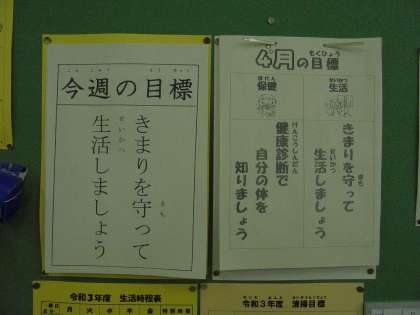 今週の目標
きまりを守って
生活しましょう
4月の目標
生活
きまりを守って
生活しましょう
保健
健康診断で
自分の体を
知りましょう
令和3年度 生活時程表
月 火 水 木 金
令和3年度 清掃目標